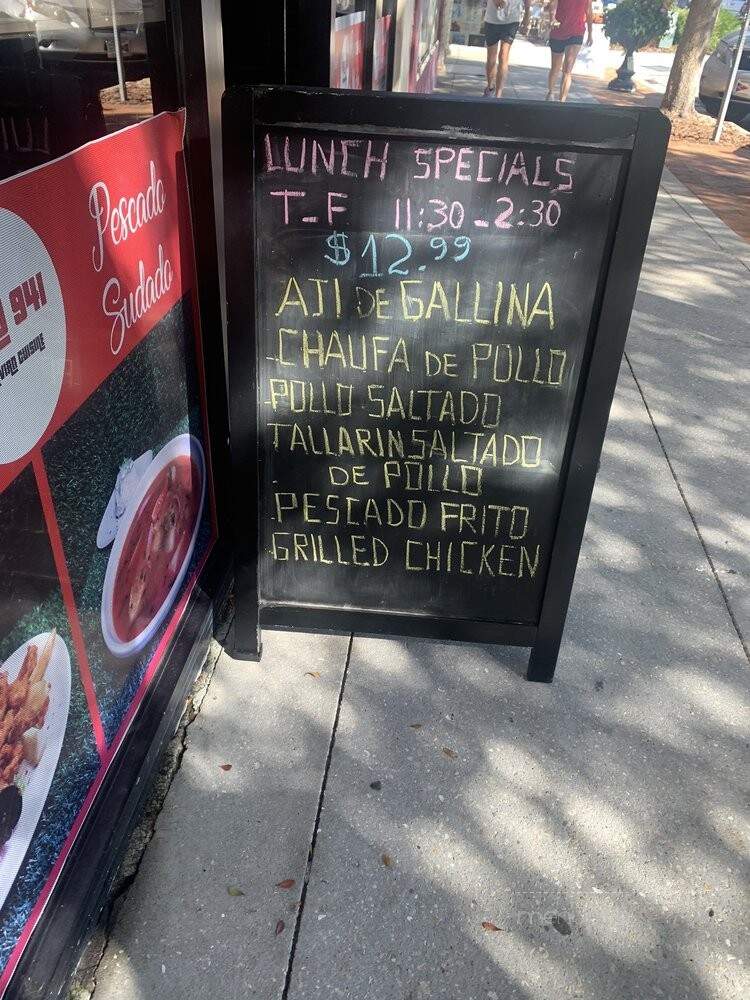 LUNCH SPECIALS
T-F 11:30-2:30
$12.99
AJI DE GALLINA
-CHAUFA DE POLLO
-POLLO SALTADO
TALLARIN SALTADO
DE POLLO
-PESCADO FRITO
-GRILLED CHICKEN
Pescado
Sudado
941
CUISINE